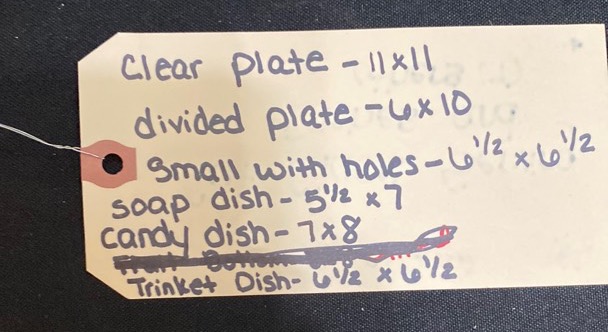 Clear plate - 11x11
divided plate - 6x10
Small with holes - 6 1/2 x 6 1/2
soap dish - 5 1/2 x7
candy dish - 7x8
Trinket Dish- 6 1/2 x 6 1/2